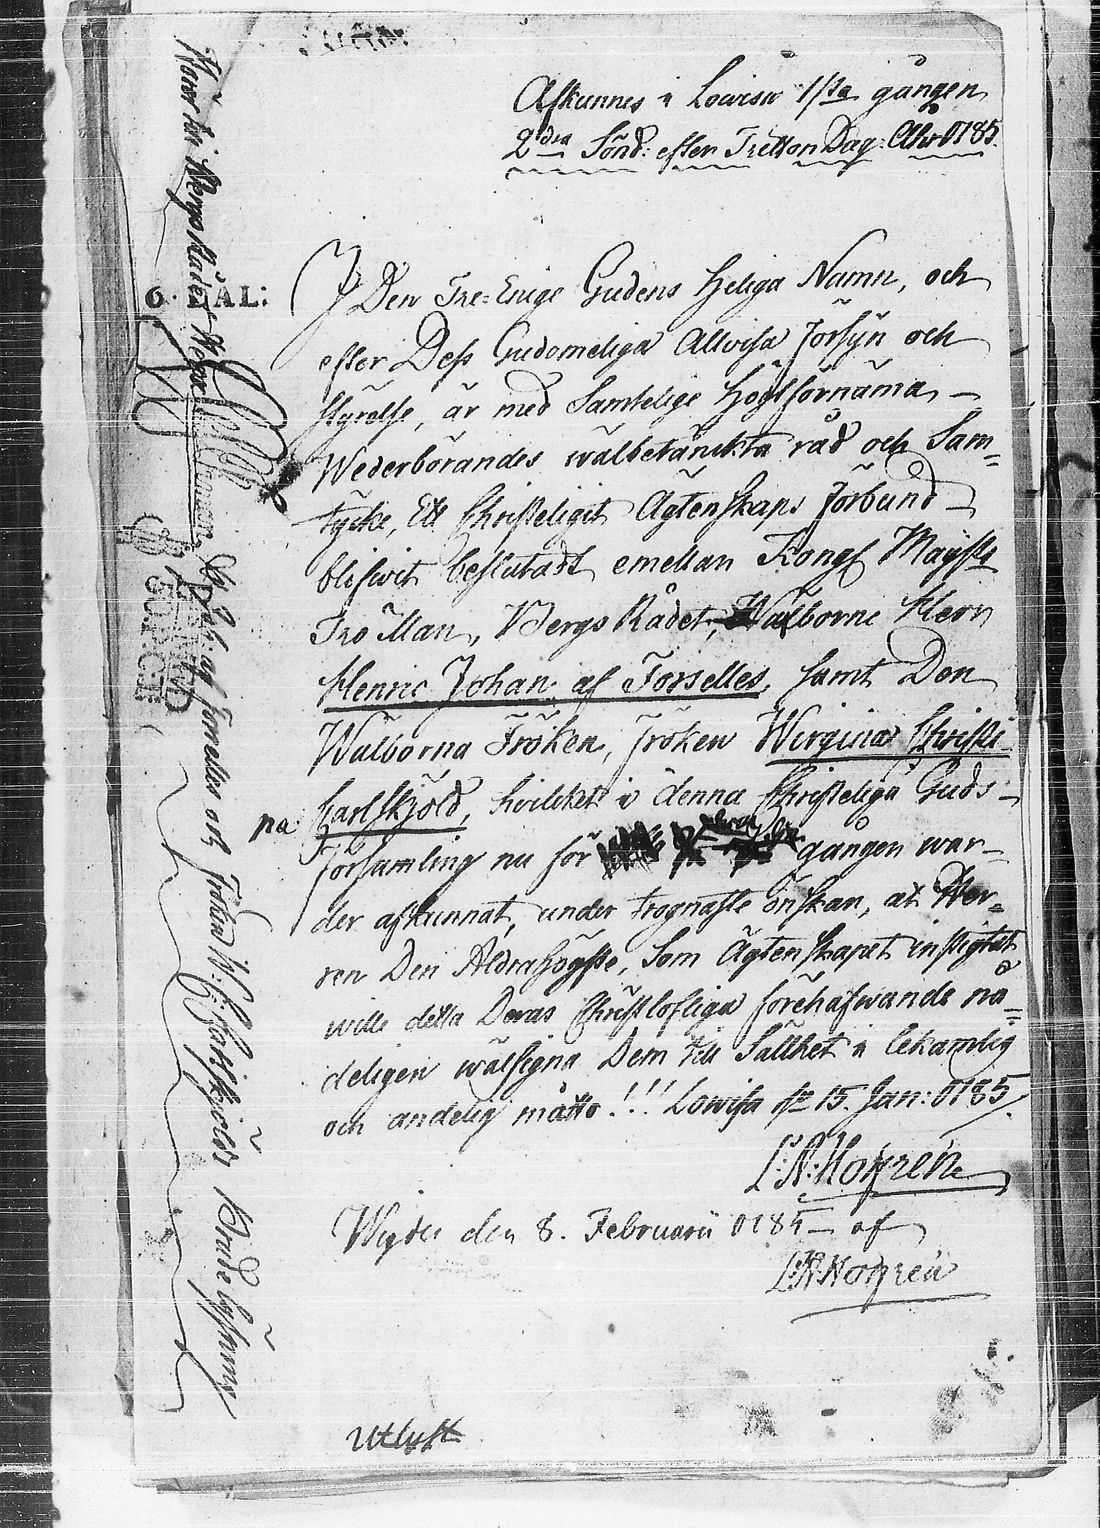 Afkunnes i Lowisa 1sta gången
2dra Sönd: efter Tretton Dag: Åhr 0185.
6. DAL:
J Den Tre=Enige Gudens Heliga Namn, och
efter Dess Gudomeliga Allvisa Försyn och
styrelse, är med Samtelige Högtförnäma
Wederbörandes wälbetänckta råd och Sam=
tycke, Ett Christeligit Ägtenskaps förbund
blifwit beslutadt emellan Kongl Maysts
Tro Man, Bergs Rådet, Wälborne Herr
Henric Johan af Forselles, samt Den
Wälborna Fröken, fröken Wirgina Christi
na Carlskjöld, hvilcket i denna Christeliga Guds
församling nu för gången war
der afkunnat, under trognaste önskan, at Her=
ren Den Aldrahögste, Som Ägtenskapet instigtat
wille detta Deras Christlofliga förehafwande nå=
deligen wälsigna Dem till Sällhet i lekamlig
och andelig måtto!!! Lowisa de 15. Jan: 0185
L:N:Hoffrén
Wigde den 8. Februarii 0185 af
L:N:Hoffrén
Utlyst
af Forselles och Fröken W: C: Carlskjöld Brude Lysning